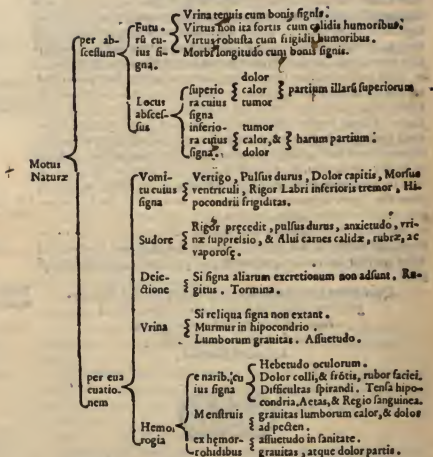 Motus
Naturæ
per ab-
scessum
Futu-
rũ cu-
ius si-
gna.
Vrina tenuis cum bonis signis.
Virtus non ita fortis cum calidis humoribus.
Virtus robusta cum frigidis humoribus.
Morbi longitudo cum bonis signis.
Locus
absces-
sus
superio
ra cuius
signa
dolor
calor
tumor
partium illarũ superiorum
inferio-
ra cuius
signa.
tumor
calor, &
dolor
harum partium.
per eua
cuatio-
nem
Vomi-
tu cuius
signa
Vertigo, Pulsus durus, Dolor capitis, Morsus
ventriculi, Rigor Labri inferioris tremor, Hi-
pocondrii frigiditas.
Sudore
Rigor pręcedit, pulsus durus, anxietudo, vri-
næ suppreisio, & Alui carnes calidæ, rubræ, ac
vaporosę.
Deie-
ctione
Si signa aliarum excretionum non adsunt. Ru-
gitus. Tormina.
Vrina
Si reliqua signa non extant.
Murmur in hipocondrio.
Lumborum grauitas. Assuetudo.
Hemor
rogia
e narib. cu
ius signa
Hebetudo oculorum.
Dolor colli, & frõtis, rubor faciei.
Difficultas spirandi. Tensa hipo-
condria, Aetas, & Regio sanguinea.
Menstruis
grauitas lumborum calor, & dolor
ad pecten.
ex hemor-
rohidibus
assuetudo in sanitate.
grauitas, atque dolor partis.